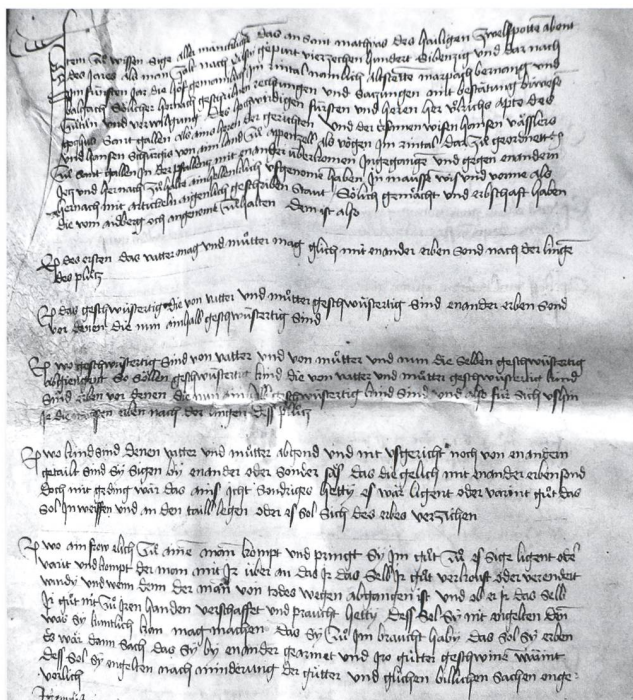 Item zů wissen sige aller mäncklich das an sant mathyas des hailigen zwelfpotte abent
des Jares als man zalt nach Cristy gepurt vierzechen hundert Sibenzig und dar nach
im fünften Jar die höf gemainlich im rintal namlich altstette marpach bernang und
balgach Sölicher hernach geschriben rechnungen und Satzungen mit bestätung
willen und verwilgung des hochwirdigen fürsten und heren her ůlrichs apte des
gotzhus Sant gallen als ains heren der gerichten und der ersamen wisen hansen vässlers
und hansen als vögen im rintal dar zů geordnett
zů Sant gallen in der pfallentz mit enander überkomen Ingegange und gegen enandern
Jetz und hernach zů halten ainhellenklich ufgenome haben In mausse wis und forme als
hernach mit artickeln aigenlich geschriben Staut Sölich gemächt und erbschaft haben
die vom och angenomt zů halten Dem ist also
des ersten das vatter mag und můtter mag glich mit enander erben Sond nach der linge
des plůtz
das geschwüstergit die von vatter und můtter geschwüstergit Sind enander erben Sond
vor denen die nun ainhalb geschwüstergit Sind
wo geschwüstergit Sind von vatter und von můtter und nun die Selben geschwüstergit
abgiengint So Söllen geschwüstergit kind die von vatter und můtter geschwüstergit kind
Sind erben vor denen die nun ainhalb geschwüstergit kind Sind und also für Sich
Je die nächsten erben nach der lingen dess plůtz
wo kind Sind denen vatter und můtter abgend und nit usgericht noch von enandern
getailt Sind Sy Sigen by enander oder Sonder das die gelich mit enander erben Sond
doch mit geding wär das ains icht Sondriges hetty es wär ligent oder varint gůt das
Sol Inwerffen und an den taill legen oder es Sol Sich des erbes verzichen
wo ain frow elich zů aim man kompt und pringt Sy Im gůt zů es sige ligent oder
varint und kompt der man mit Ir über an das Ir das Selb Ir gůt verkouft oder verendert
wurdy und wenn denn der man von todes wegen abgangen ist und ob er Ir das Selb
Ir gůt nit zů Iren handen verschaffet und praucht hetty Dess Sol Sy nit engelten den
was Sy kuntlich kan mag machen das Sy zů Im braucht haby das Sol Sy erben
Es wär dann Sach das Sy by enander gearmet und Iro gůtter geschwine wärint
Dess Sol Sy engelten nach minderung der gütter und glichen billichen Sachen